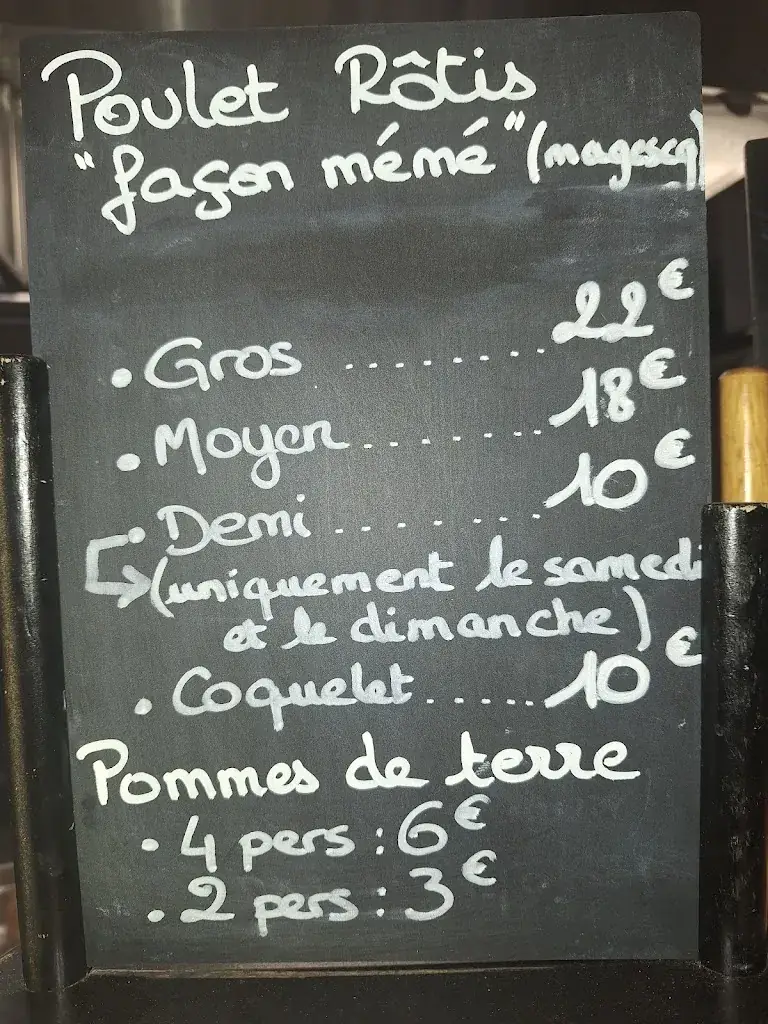 Poulet Rôtis
"façon mémé" (magescq)
• Gros ........ 22€
• Moyen ........ 18€
• Demi ........ 10€
(uniquement le samedi
et le dimanche)
• Coquelet ...... 10€
Pommes de terre
• 4 pers : 6€
• 2 pers : 3€